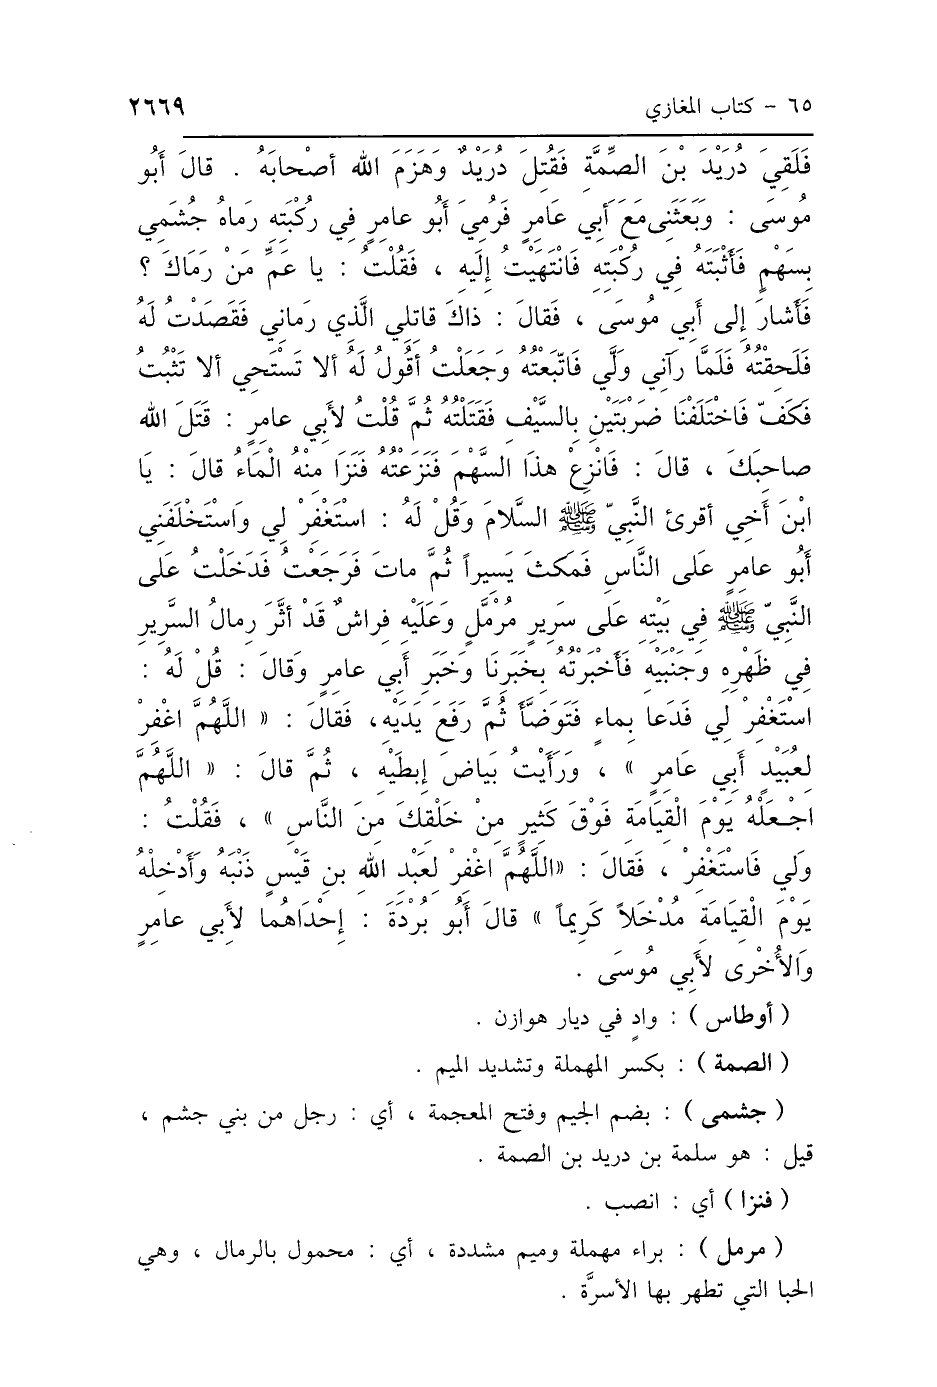 ٦٥ - كتاب المغازي ٢٦٦٩
فَلَقِيَ دُرَيْدَ بْنَ الصِّمَّةِ فَقُتِلَ دُرَيْدٌ وَهَزَمَ الله أصْحابَهُ . قالَ أَبُو
مُوسَى : وَبَعَثَنِي مَعَ أبي عَامِرٍ فَرُمِيَ أَبُو عامِرٍ فِي رُكْبَتِهِ رَماهُ جُشَمِي
بِسَهْمٍ فَأَثْبَتَهُ فِي رُكْبَتِهِ فَانْتَهَيْتُ إِلَيهِ ، فَقُلْتُ : يا عَمِّ مَنْ رَمَاكَ ؟
فَأَشارَ إِلى أَبي مُوسَى ، فَقالَ : ذاكَ قاتِلِي الَّذِي رَماني فَقَصَدْتُ لَهُ
فَلَحِقْتُهُ فَلَمَّا رَآنِي وَلَّي فَاتَّبَعْتُهُ وَجَعَلْتُ أقُولُ لَهُ ألا تَسْتَحِي ألا تَثْبُتُ
فَكَفّ فَاخْتَلَفْنَا ضَرْبَتَيْنِ بِالسَّيْفِ فَقَتَلْتُهُ ثُمَّ قُلْتُ لأَبي عامِرٍ : قَتَلَ الله
صاحِبَكَ ، قالَ : فَانْزِعْ هذَا السَّهْمَ فَنَزَعْتُهُ فَنَزَا مِنْهُ الْمَاءُ قالَ : يَا
ابْنَ أَخِي أقرئ النَّبِيّ ﷺ السَّلامَ وَقُلْ لَهُ : اسْتَغْفِرْ لِي وَاسْتَخْلَفَنِي
أَبُو عامِرٍ عَلَى النَّاسِ فَمَكَثَ يَسِيراً ثُمَّ ماتَ فَرَجَعْتُ فَدَخَلْتُ عَلَى
النَّبِيّ ﷺ فِي بَيْتِهِ عَلَى سَرِيرٍ مُرْمَّلٍ وَعَلَيْهِ فِراشٌ قَدْ أَثَّرَ رِمالُ السَّرِيرِ
فِي ظَهْرِهِ وَجَنْبَيْهِ فَأَخْبَرْتُهُ بِخَبَرِنَا وَخَبَرِ أبي عامِرٍ وَقالَ : قُلْ لَهُ :
اسْتَغْفِرْ لِي فَدَعا بِماءٍ فَتَوَضَّأَ ثُمَّ رَفَعَ يَدَيْهِ، فَقالَ : « اللَّهُمَّ اغْفِرْ
لِعُبَيْدٍ أبي عامِرٍ » ، وَرَأَيْتُ بَيَاضَ إِبِطَيْهِ ، ثُمَّ قالَ : « اللَّهُمَّ
اجْعَلْهُ يَوْمَ الْقِيَامَةِ فَوْقَ كَثِيرٍ مِنْ خَلْقِكَ مِنَ النَّاسِ » ، فَقُلْتُ :
وَلِي فَاسْتَغْفِرْ ، فَقالَ : «اللَّهُمَّ اغْفِرْ لِعَبْدِ الله بنِ قَيْسٍ ذَنْبَهُ وَأَدْخِلْهُ
يَوْمَ الْقِيَامَةِ مُدْخَلاً كَرِيماً » قالَ أَبُو بُرْدَةَ : إِحْدَاهُما لأَبي عامِرٍ
وَالأُخْرى لأَبِي مُوسَى .
( أوطاس ) : وادٍ في ديار هوازن .
( الصمة ) : بكسر المهملة وتشديد الميم .
( جشمى ) : بضم الجيم وفتح المعجمة ، أي : رجل من بني جشم ،
قيل : هو سلمة بن دريد بن الصمة .
( فنزا ) أي : انصب .
( مرمل ) : براء مهملة وميم مشددة ، أي : محمول بالرمال ، وهي
الحبا التي تطهر بها الأسرَّة .